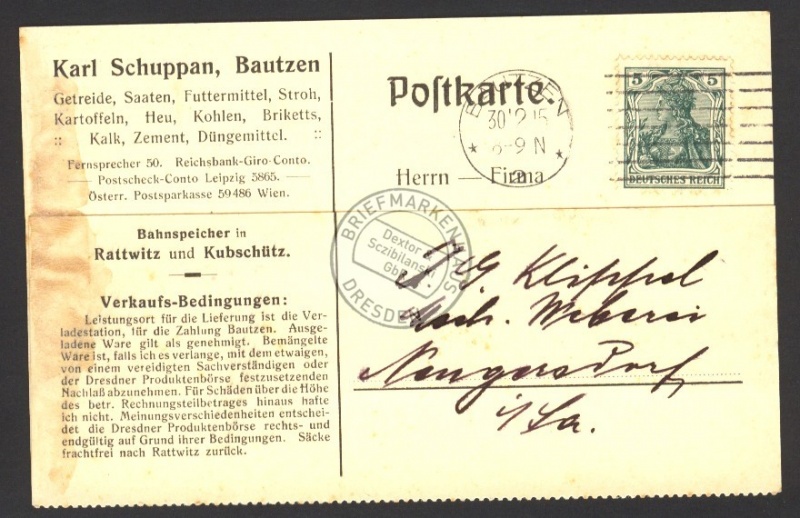 Karl Schuppan, Bautzen
Getreide, Saaten, Futtermittel, Stroh,
Kartoffeln, Heu, Kohlen, Briketts,
:: Kalk, Zement, Düngemittel. ::
Fernsprecher 50. Reichsbank-Giro-Conto.
— Postscheck-Conto Leipzig 5865. —
Österr. Postsparkasse 59486 Wien.
Bahnspeicher in
Rattwitz und Kubschütz.
Verkaufs-Bedingungen:
Leistungsort für die Lieferung ist die Ver-
ladestation, für die Zahlung Bautzen. Ausge-
ladene Ware gilt als genehmigt. Bemängelte
Ware ist, falls ich es verlange, mit dem etwaigen,
von einem vereidigten Sachverständigen oder
der Dresdner Produktenbörse festzusetzenden
Nachlaß abzunehmen. Für Schäden über die Höhe
des betr. Rechnungsteilbetrages hinaus hafte
ich nicht. Meinungsverschiedenheiten entschei-
det die Dresdner Produktenbörse rechts- und
endgültig auf Grund ihrer Bedingungen. Säcke
frachtfrei nach Rattwitz zurück.
Postkarte.
BAUTZEN
30 12 15
6-9 N
5 5
DEUTSCHES REICH
Herrn — Firma
BRIEFMARKENHAUS
Dextor
Sczibilanski
GbR
DRESDEN
Klippel
Mech. Weberei
Neugersdorf
i/Sa.